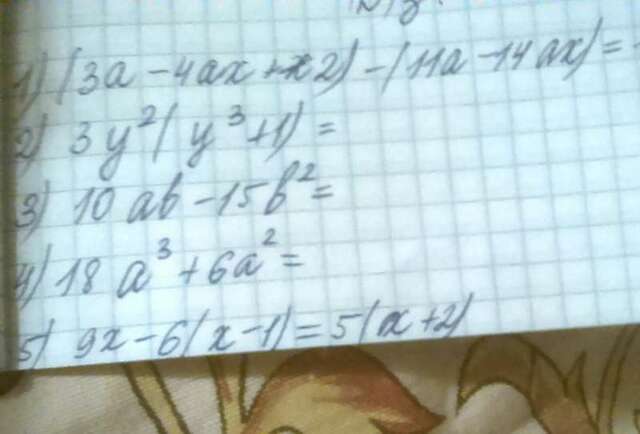 1) (3a - 4ax + x2) - (11a - 14ax) =
2) 3y²(y³+1) =
3) 10ab - 15b² =
4) 18a³ + 6a² =
5) 9x - 6(x-1) = 5(x+2)